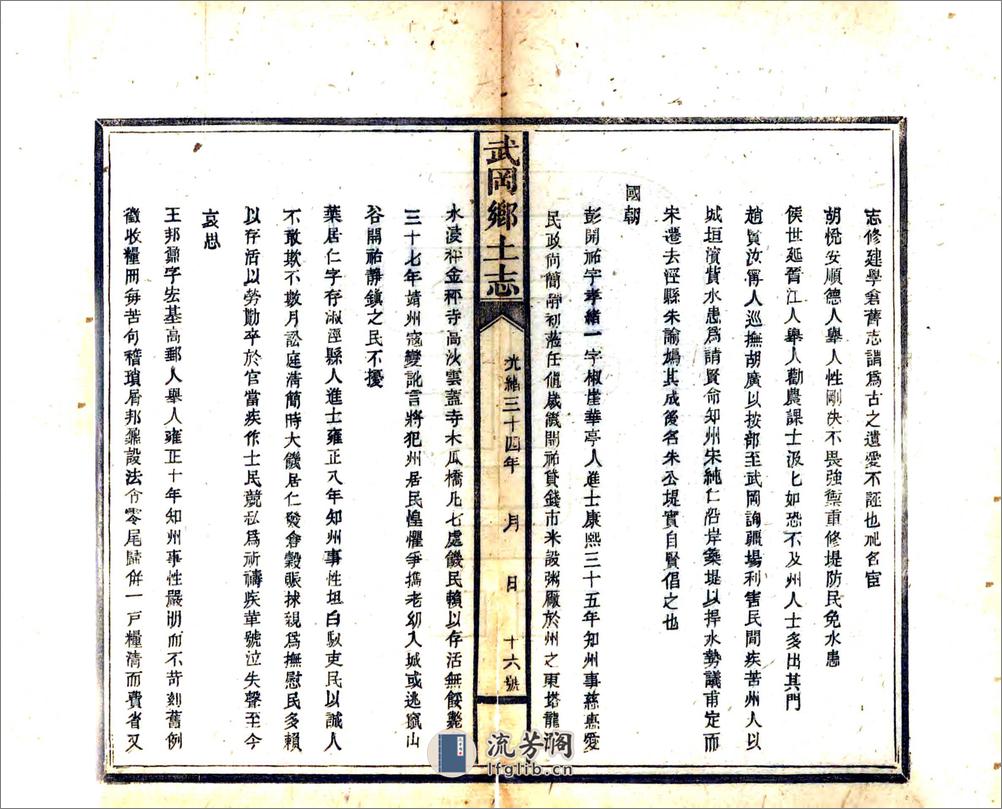 志修建學倉舊志謂爲古之遺愛不誣也祀名宦
胡悅安順德人舉人性剛決不畏強禦重修堤防民免水患
侯世延晉江人舉人勸農課士汲匕如恐不及州人士多出其門
趙賢汝甯人巡撫胡廣以按部至武岡詢疆埸利害民間疾苦州人以
城垣濱貲水患爲請賢命知州宋純仁沿岸築堤以捍水勢議甫定而
宋遷去涇縣朱諭塲其成後名朱公堤實自賢倡之也
國朝
彭開祐字孝緒一字椒崖華亭人進士康熙三十五年知州事慈惠愛
民政尚簡靜初蒞任値歲饑開祐貸錢市米設粥厰於州之東塔龍
武岡鄉土志
光緒三十四年 月 日 十六號
水浸秤金秤寺高沙雲蓋寺木瓜橋凡七處饑民賴以存活無餒斃
三十七年靖州寇變訛言將犯州居民惶懼爭攜老幼入城或逃竄山
谷開祐靜鎮之民不擾
葉居仁字存淑涇縣人進士雍正八年知州事性坦白馭吏民以誠人
不敢欺不數月訟庭淸簡時大饑居仁發倉穀賑捄親爲撫慰民多賴
以存活以勞勤卒於官當疾作士民競私爲祈禱疾革號泣失聲至今
哀思
王邦鼐字宏基高郵人舉人雍正十年知州事性嚴明而不苛刻舊例
徵收糧冊每苦句稽瑣屑邦鼐設法令零尾歸併一戶糧清而費省又
流芳閣
lfglib.cn